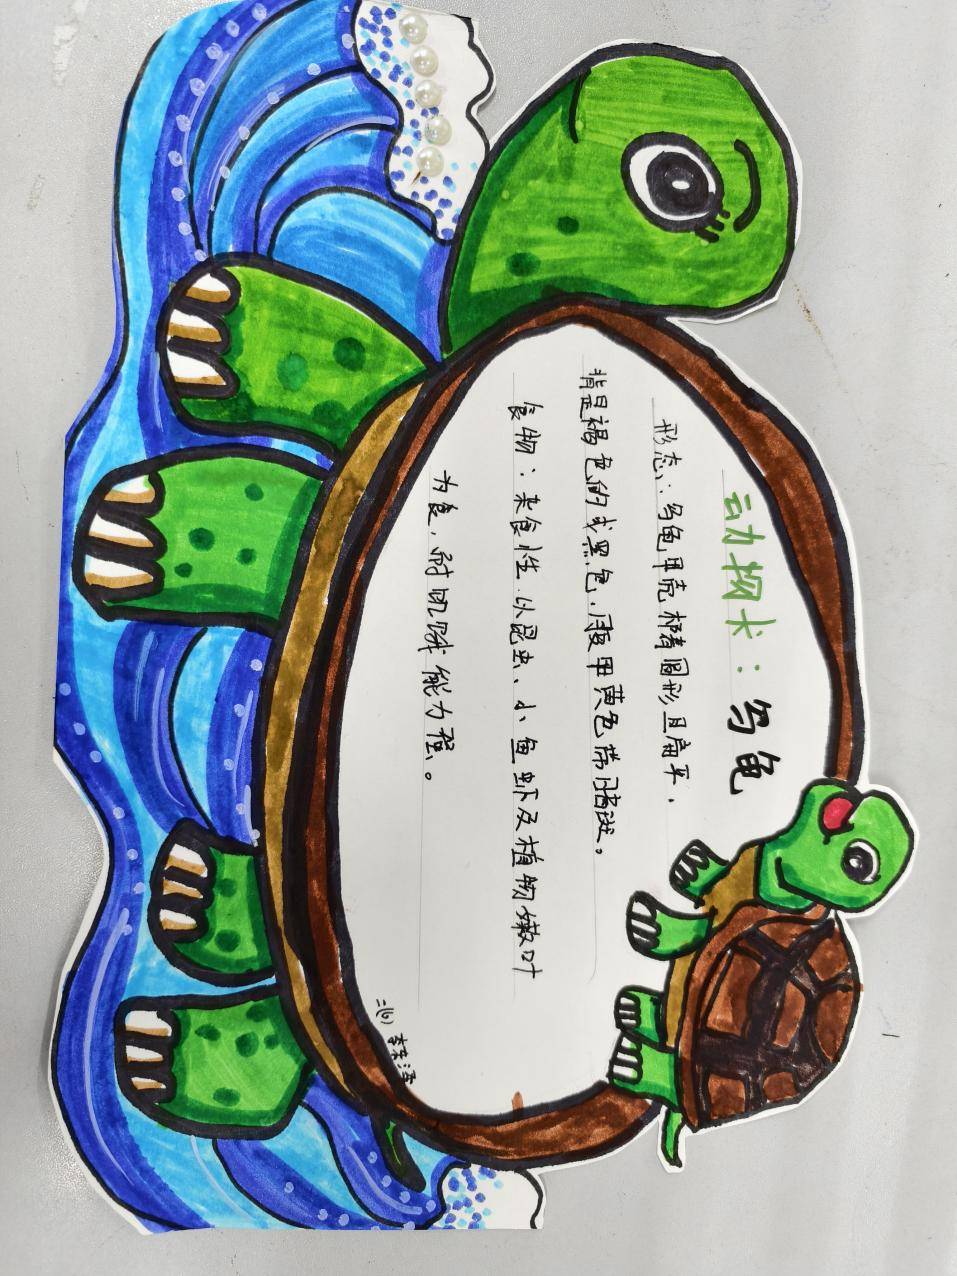 动物卡：乌龟
形态：乌龟甲壳椭圆形且扁平，
背是褐色的或黑色，腹甲黄色带暗斑。
食物：杂食性，以昆虫、小鱼虾及植物嫩叶
为食，耐饥饿能力强。
二(6)